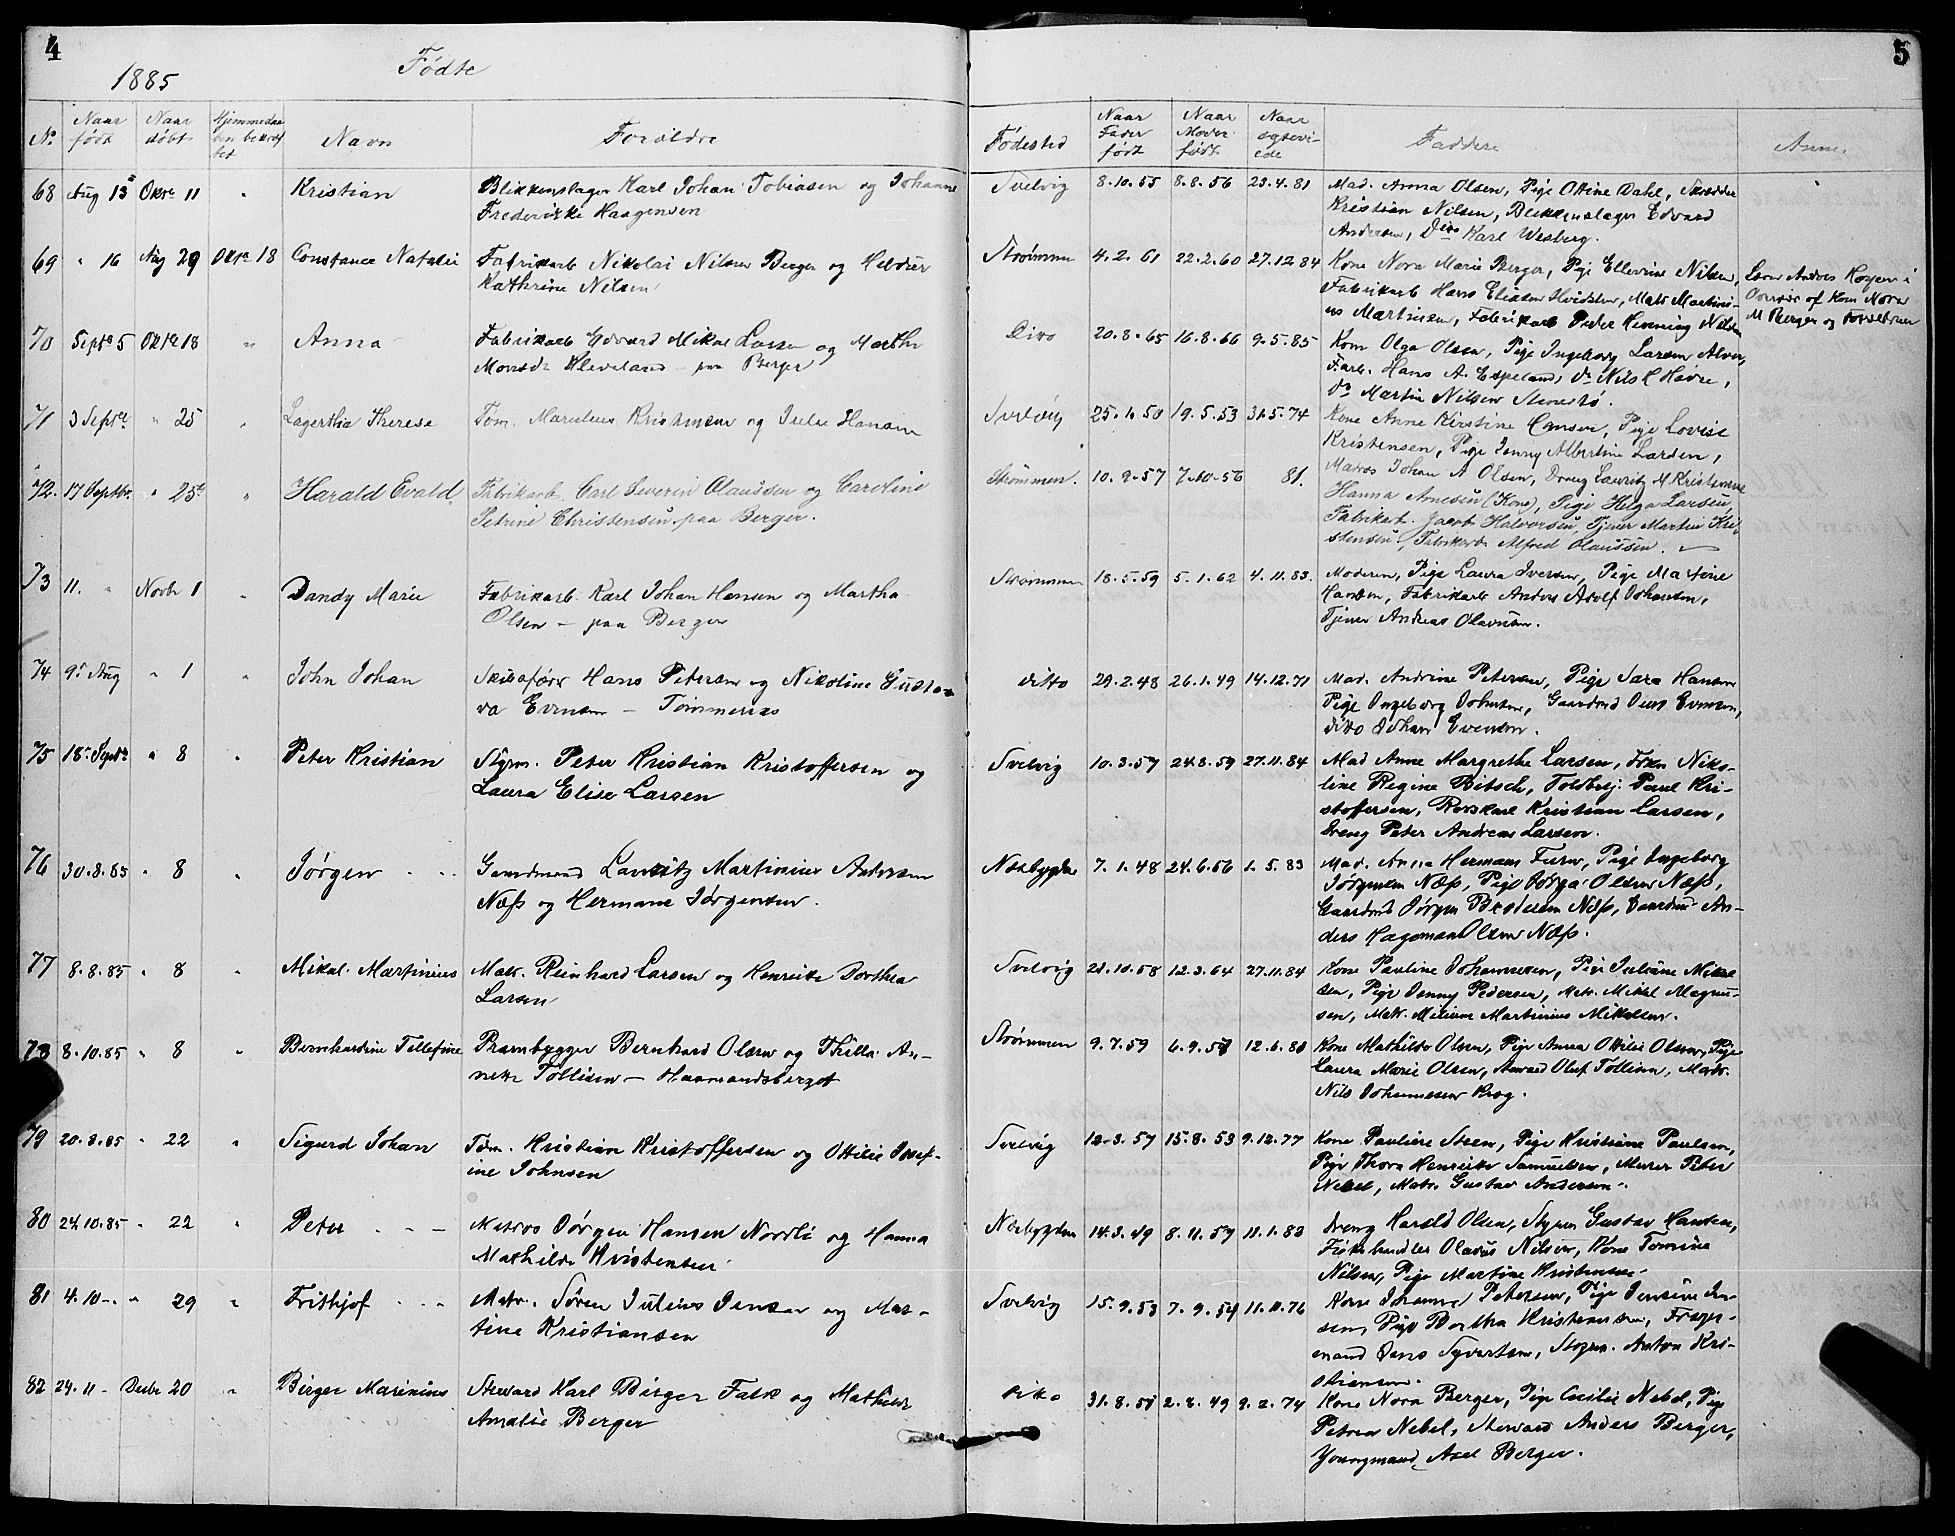 4
5
1885
Födte
No.
Naar födt
Naar döbt
Hjemmedaaben bekræftet
Navn
Forældre
Fødested
Naar Fader født
Naar Moder født
Naar ægteviede
Faddere
Anm.
68 Aug 13 Oktr 11 " Kristian Blikkenslager Karl Johan Tobiasen og Johanne Svelvig 8.10.55 8.8.56 23.4.81 Mad. Anna Olsen, Pige Ottine Dahl, Skrædder
Frederikke Haagensen Kristian Nilsen, Blikkenslager Edvard
Andersen, Karl Wesberg.
69 " 16 Aug 29 Oktr 18 Constance Natalie Fabrikarb Nikolai Nilsen Berger og Strømmen 4.2.61 22.2.60 27.12.84 Kone Nora Marie Berger, Pige Ellevine Nilsen,
Kathrine Nilsen Fabrikarb Hans Eliasen, Matr Martini-
us Martinsen, Fabrikarb Peder Henning Nilsen
M Berger og Forældrene
70 Septr 5 Oktr 18 " Anna Fabrikarb Edvard Mikal Larsen og Marthe Ditto 20.8.65 16.8.66 9.5.85 Kone Olga Olsen, Pige Ingeborg Larsen
Kleveland paa Berger Farb. Hans A. Espeland, Do Nils
Do Martin Nilsen
71 3 Septr " 25 " Lagertha Therese Tøm. Kristensen og Julie Hansen Svelvig 25.1.50 19.5.53 31.5.74 Kone Anne Kirstine Hansen, Pige Lovise
Kristensen, Pige Jenny Albertine Larsen,
Matros Johan A Olsen, Dreng Lauritz M Kristensen
72. 17 Septbr. " 25 " Harald Evald Fabrikarb. Carl Severin Olaussen og Caroline Strømmen. 10.9.57 7.10.56 81. Hanna Arnesen (Kone), Pige Helga Larsen,
Petrine Christensen paa Berger. Fabrikarb. Jacob Halvorsen, Tjener Martin Kri-
stensen, Fabrikarb Alfred Olaussen.
73 11. " Novbr 1 " Dandy Marie Fabrikarb. Karl Johan Hansen og Martha Strømmen 18.5.59 5.1.62 4.11.83. Moderen, Pige Laura Iversen, Pige Martine
Olsen – paa Berger Hansen, Fabrikarb Anders Adolf Johansen,
Tjener Andreas Olavesen.
74 9. Aug " 1 " John Johan Skibsfører Hans Petersen og Nikoline Gusta- ditto 29.2.48 26.1.49 14.12.71 Mad. Andrine Petersen, Pige Sara Hansen
va Evensen – Tømmeraas Pige Ingeborg Johnsen, Gaardmd Evensen,
ditto Johan Evensen.
75 18. Septr " 8 " Peter Kristian Styrm. Peter Kristian Kristoffersen og Svelvig 10.3.57 24.8.59 27.11.84 Mad Anne Margrethe Larsen, Frkn Niko-
Laura Elise Larsen line Regine Bitsch, Toldbetj. Paul Kri-
stoffersen, Kristian Larsen,
Dreng Peter Andreas Larsen.
76 30.8.85 " 8 " Jørgen Gaardmand Lauritz Martinius Andersen Næsbygden 7.1.48 24.6.56 1.5.83 Mad. Anna Hermans, Pige Ingeborg
Næss og Hermane Jørgensen. Jørgensen Næss, Pige Olsen Næss,
Gaardmd Jørgen Næss, Gaardmd An-
ders Hageman Olsen Næss.
77 8.8.85 " 8 " Mikal Martinius Matr. Reinhard Larsen og Henrikke Dorthea Svelvig 21.10.58 12.3.64 27.11.84 Kone Pauline Johannesen, Pige Juliane Mikal-
Larsen sen, Pige Jenny Pedersen, Matr. Mikal Magnu-
sen, Matr. Martinius Mikalsen.
78 8.10.85 " 8 " Bernhardine Tillefine Prambygger Bernhard Olsen og Thilla An- Strømmen 9.7.59 6.9.57 12.6.80 Kone Mathilde Olsen, Pige Anna Ottilie Olsen, Pige
nette Tollisen – Laura Marie Olsen, Oluf Tollisen, Matr.
Nils Johannesen Krog.
79 20.8.85 " 22 " Sigurd Johan Tøm. Kristian Kristoffersen og Ottilie Josef- Svelvig 12.3.57 15.8.53 9.12.77 Kone Pauline Steen, Pige Kristiane Paulsen,
ine Johnsen Pige Thora Henrikke Samuelsen, Murer Peter
Nebel, Matr. Gustav Andersen.
80 24.10.85 " 22 " Peter Matros Jørgen Hansen Nordli og Hanna Næsbygden 14.3.49 8.11.59 11.1.83 Dreng Harald Olsen, Styrm Gustav Hansen,
Mathilde Kristensen Fiskehandler Olaus Nilsen, Kone Tomine
Nilsen, Pige Martine Kristensen
81 4.10 " 29 " Frithjof Matr. Søren Julius Jensen og Mar- Svelvig 15.9.53 7.9.54 11.11.76 Kone Johanne Petersen, Pige Jensine Jen-
tine Kristiansen sen, Pige Bertha Kristiansen, Færge-
mand Jens Syvertsen, Styrm. Anton Kri-
stiansen.
82 24.11 – Decbr 20 " Birger Marinius Steward Karl Birger Falk og Mathilde ditto 31.8.51 2.8.49 9.2.74 Kone Nora Berger, Pige Cecilie Nebel, Pige
Amalie Berger Petrea Nebel, Steward Anders Berger,
Youngmand Axel Berger.